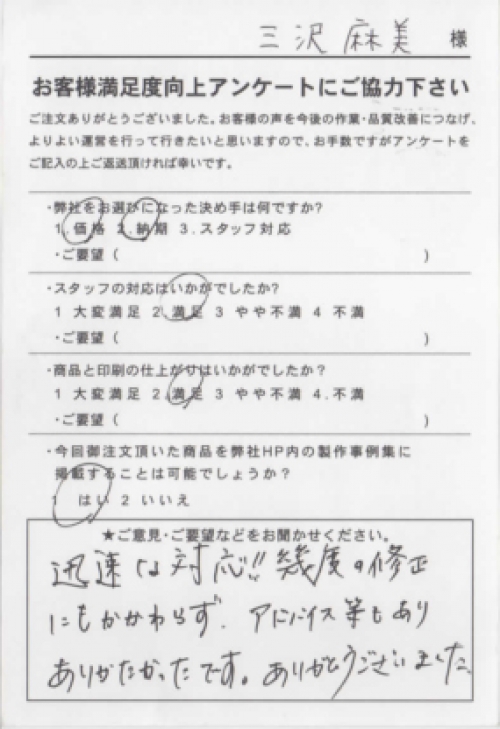 三沢麻美 様
お客様満足度向上アンケートにご協力下さい
ご注文ありがとうございました。お客様の声を今後の作業・品質改善につなげ、
よりよい運営を行って行きたいと思いますので、お手数ですがアンケートを
ご記入の上ご返送頂ければ幸いです。
・弊社をお選びになった決め手は何ですか?
1.価格 2.納期 3.スタッフ対応
・ご要望（ ）
・スタッフの対応はいかがでしたか?
1 大変満足 2.満足 3 やや不満 4 不満
・ご要望（ ）
・商品と印刷の仕上がりはいかがでしたか？
1 大変満足 2.満足 3 やや不満 4.不満
・ご要望（ ）
・今回御注文頂いた商品を弊社HP内の製作事例集に
掲載することは可能でしょうか？
1 はい 2 いいえ
★ご意見・ご要望などをお聞かせください。
迅速な対応!!幾度の修正
にもかかわらず、アドバイス等もあり
ありがたかったです。ありがとうございました。